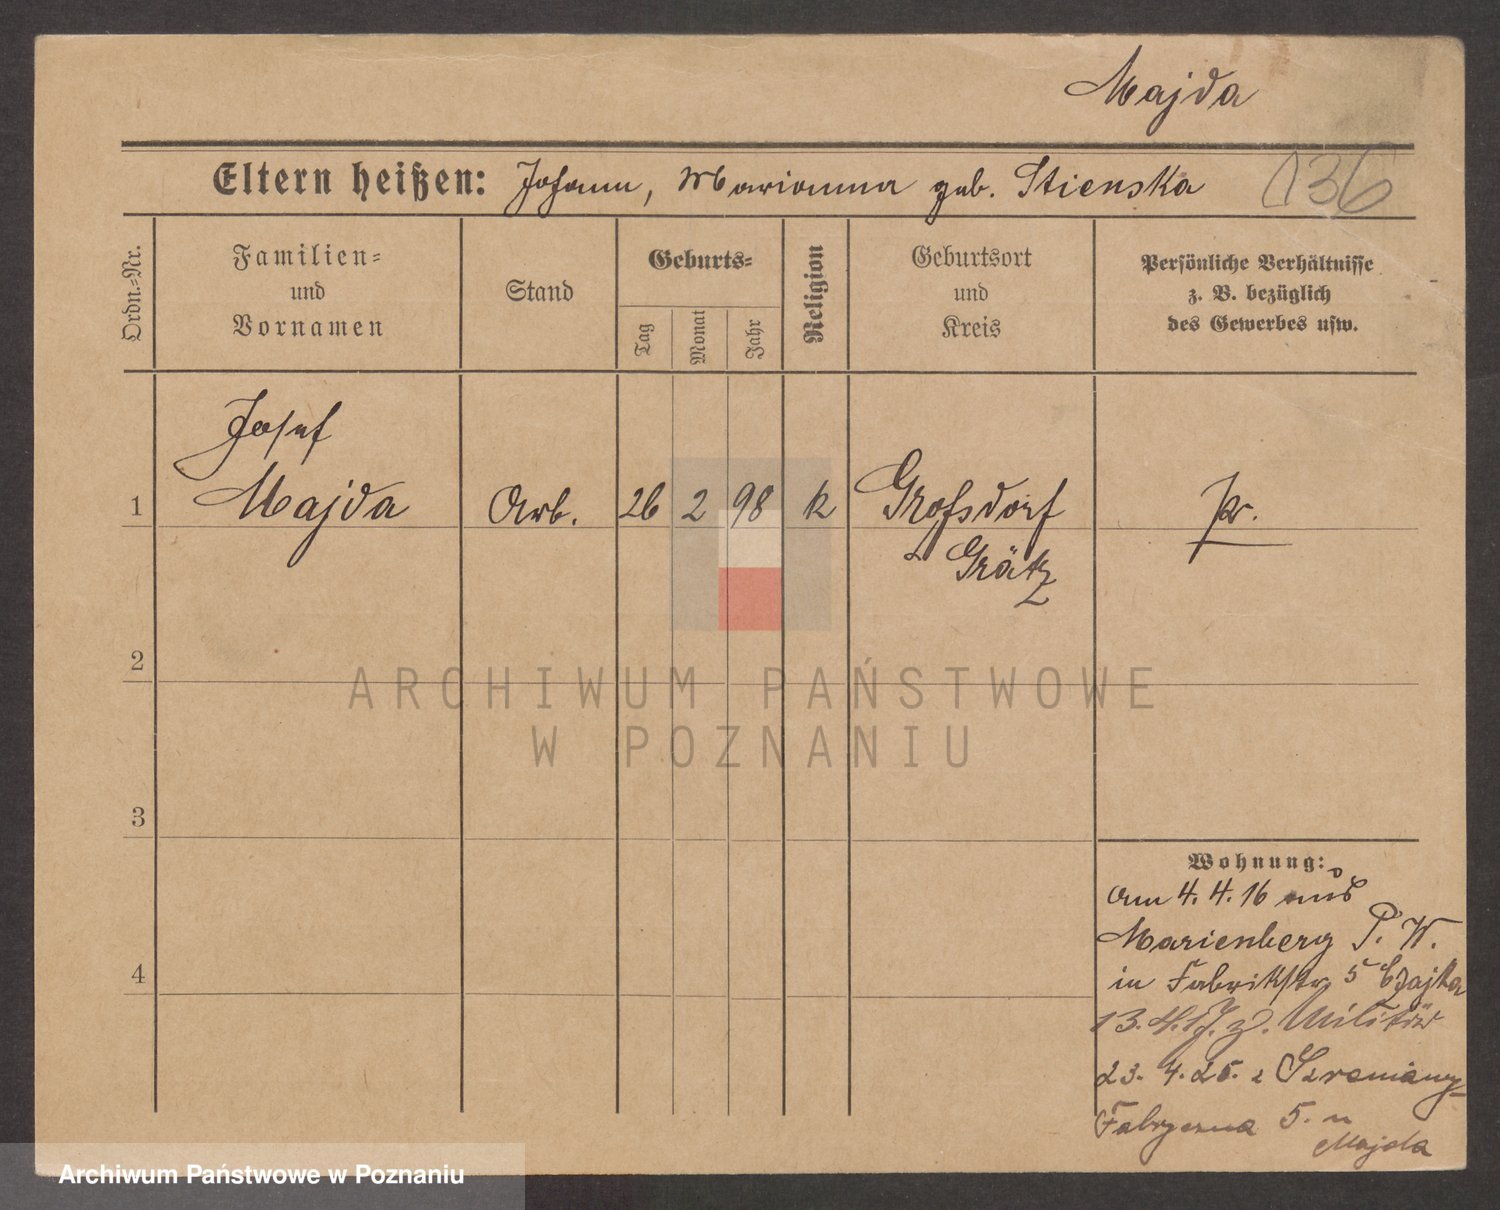 Majda
Eltern heißen: Johann, Marianna geb. Stienska
136
Ordn.=Nr.
Familien=
und
Vornamen
Stand
Geburts=
Tag
Monat
Jahr
Religion
Geburtsort
und
Kreis
Persönliche Verhältnisse
z. B. bezüglich
des Gewerbes usw.
Josef
1 Majda Arb. 26 2 98 k Großdorf pr.
Grätz
2
ARCHIWUM PAŃSTWOWE
W POZNANIU
3
Wohnung:
am 4. 4. 16 aus
Marienberg P. W.
4 in Fabrikstr 5 Czajka
13. 4. 17. z. Militär
23. 4. 25. z
Fabryczna 5. u
Majda
Archiwum Państwowe w Poznaniu